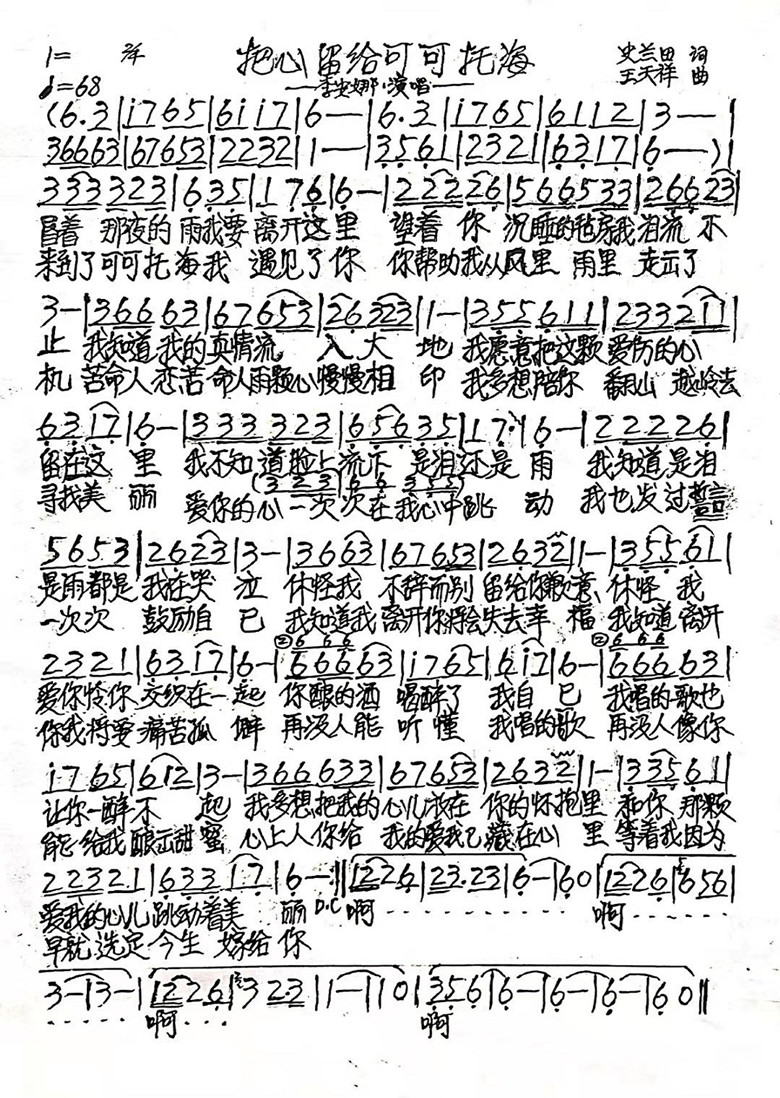 1= 2/4 把心留给可可托海 史兰田 词
♩=68 ——李安娜·演唱—— 王天祥 曲
(6.3|i765|6i17|6—|6.3|i765|6112|3——|
36663|67653|2232|1——|3561|2321|6317|6——)|
333323|635|176|6—|22226|566533|26623|
冒着 那夜的 雨我要 离开这里 望着 你 沉睡的毡房我泪流 不
来到了可可托海我 遇见了你 你帮助我从风里 雨里 走出了
3—|36663|67653|26323|1—|355611|233211|
止 我知道 我的真情流 入 大 地 我愿意把这颗 爱伤的心
机 苦命人恋苦命人两颗心慢慢相 印 我多想陪你 翻山 越岭去
6317|6—|333323|65635|17·|6—|222226|
留在这 里 我不知道脸上流下 是泪还是雨 我知道是泪
(323|66 355)
寻找美 丽 爱你的心一次次在我心中跳 动 我也发过誓言
5653|2623|3—|3663|67653|2632|1—|35561|
是雨都是 我在哭 泣 休怪我 不辞而别 留给你歉意 休怪 我
一次次 鼓励自 己 我知道我 离开你将会失去幸 福 我知道 离开
②666 ②666
2321|6317|6—|66663|i765|6i7|6—|66663|
爱你恨你 交织在一起 你酿的酒 喝醉了 我自 己 我唱的歌也
你我将受 痛苦孤 僻 再没人能 听 懂 我唱的歌 再没人像你
i765|612|3—|366633|67653|2632|1—|33561|
让你一醉不 起 我多想把我的 心儿依在 你的怀抱里 和你 那颗
能给我酿出甜蜜 心上人你给 我的爱我已藏在心 里 等着我因为
22321|63317|6—:‖1226|23·23|6—|60|1226|656|
爱我的心儿 跳动着美 丽 D.C 啊 - - - - - - - - - 啊 - - - -
早就 选定 今生 嫁给 你
3—|3—|1226|3 2·3|1—|10|356|6—|6—|6—|60‖
- - - - - 啊 - - - 啊